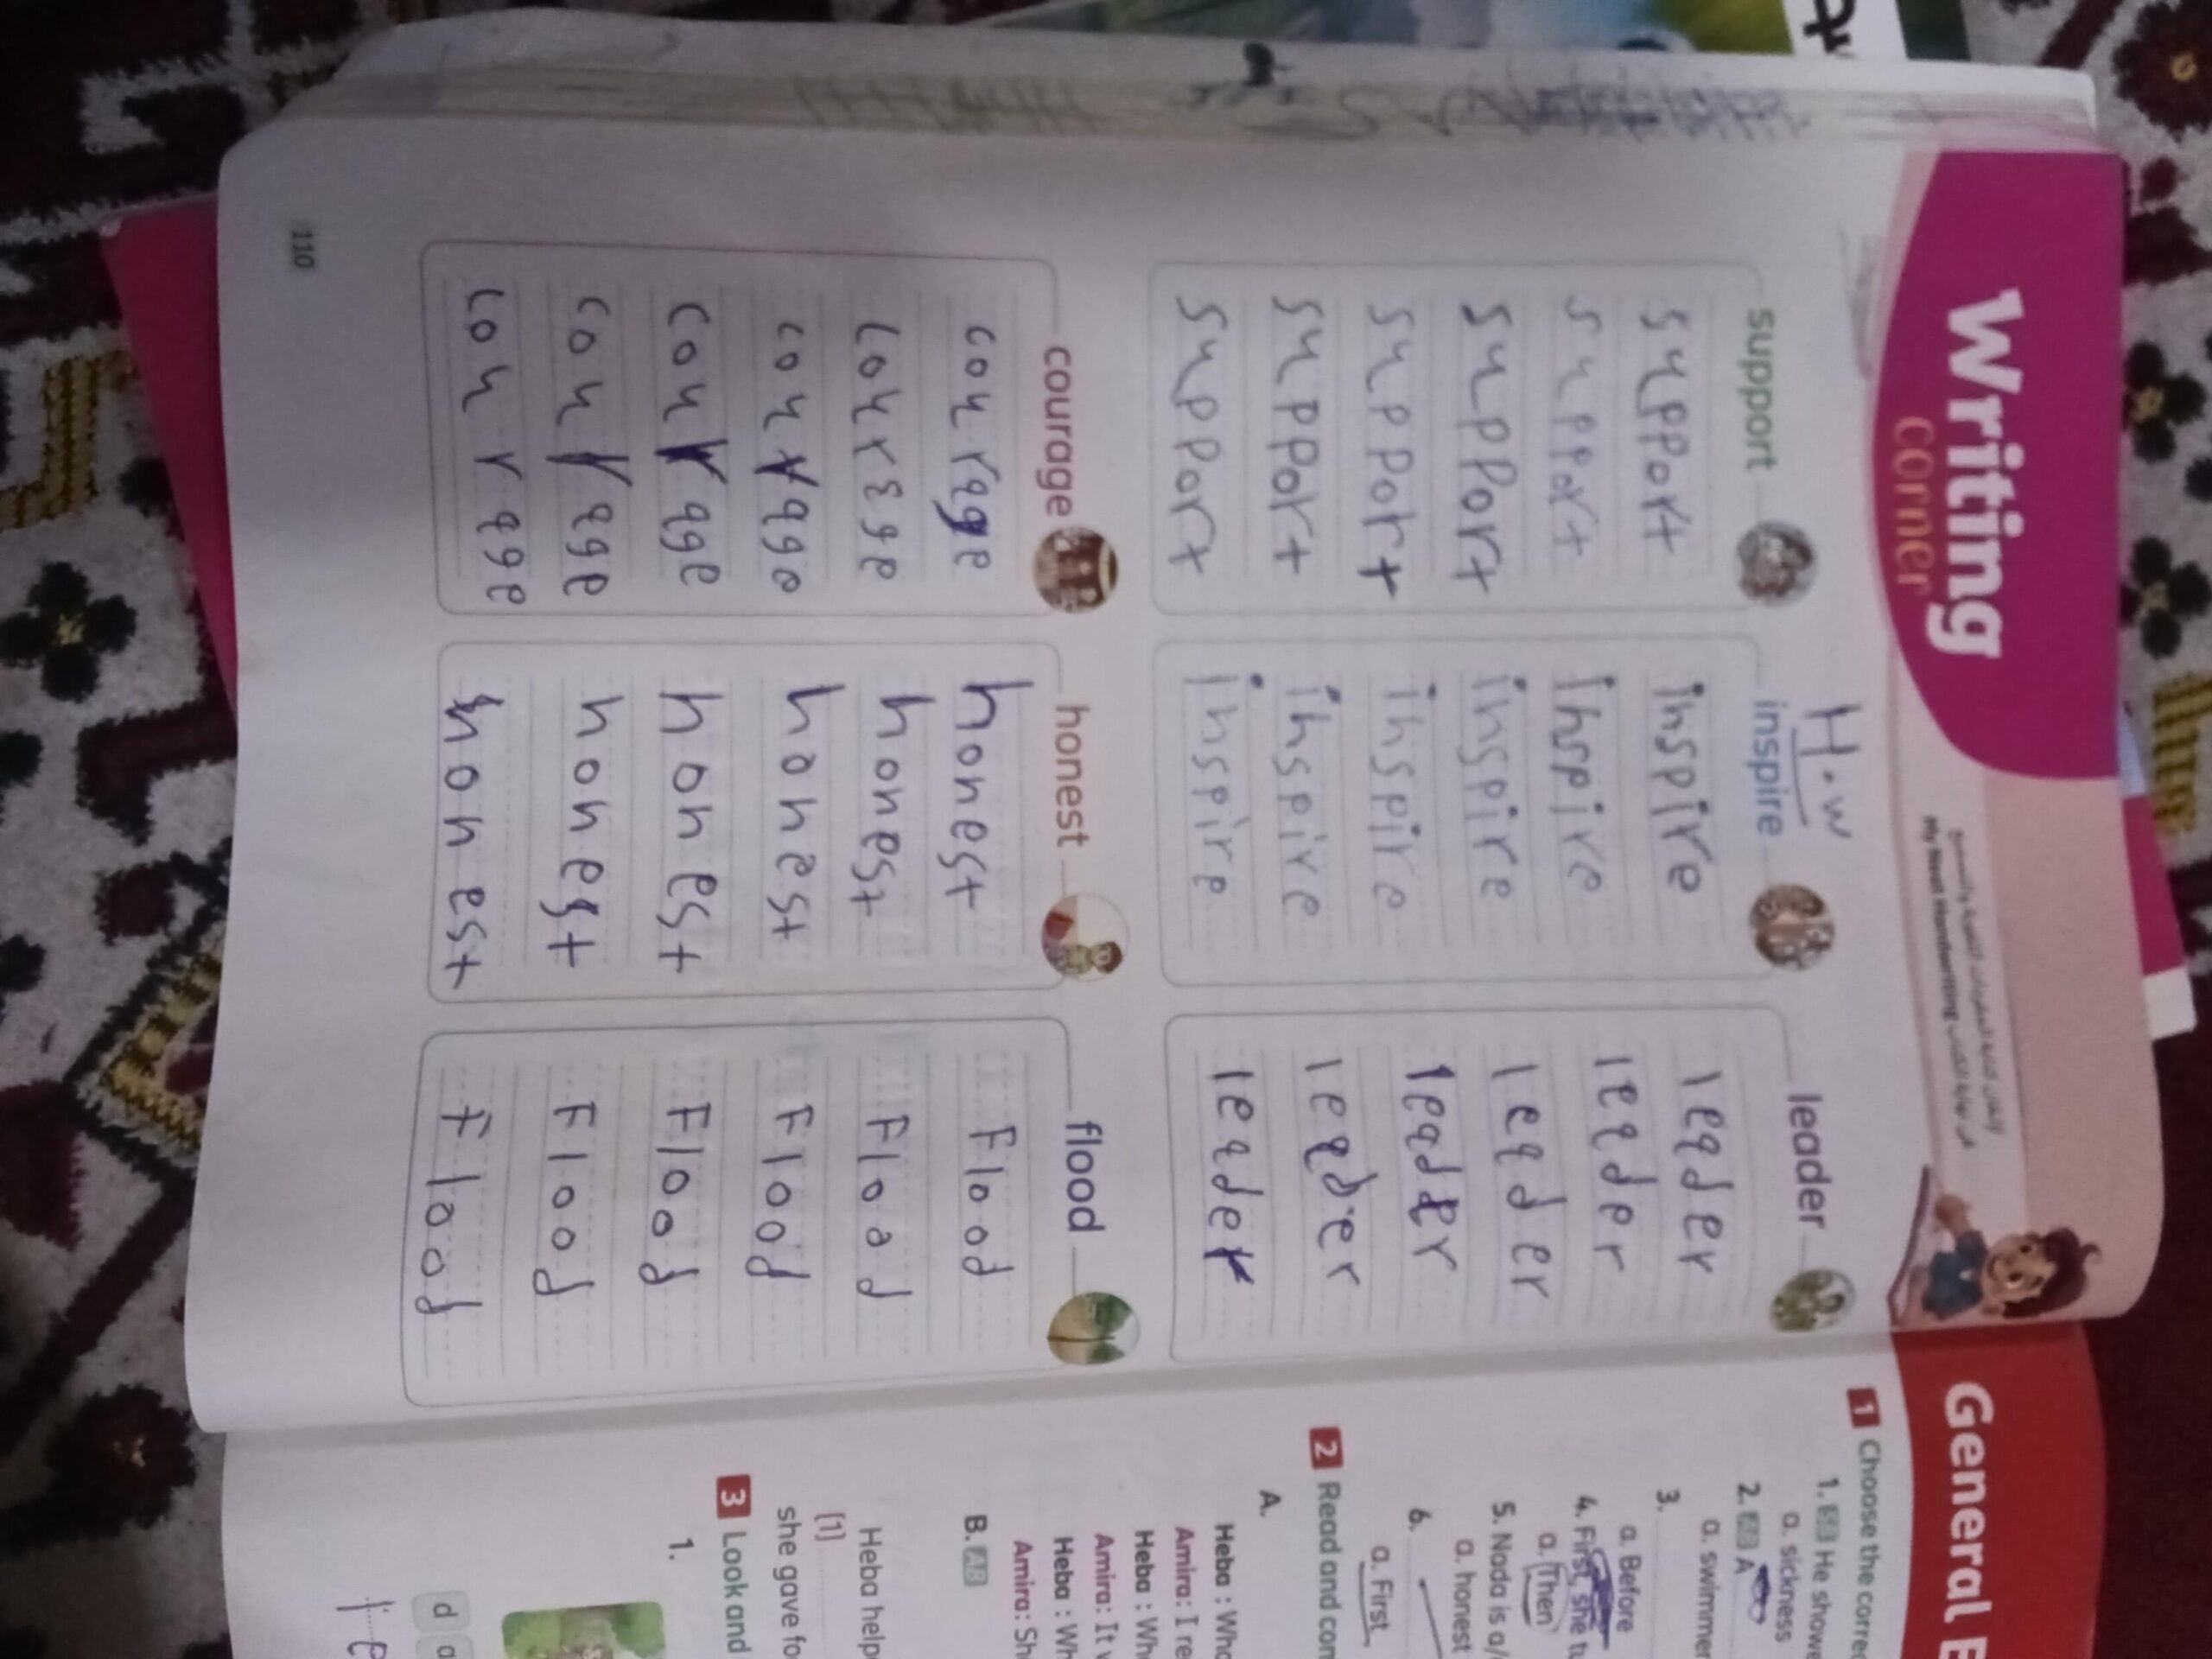 Writing
corner
My Neat Handwriting
H.w
support
support
support
support
support
support
support
inspire
inspire
inspire
inspire
inspire
inspire
inspire
leader
leader
leader
leader
leader
leader
leader
courage
courage
courage
courage
courage
courage
courage
honest
honest
honest
honest
honest
honest
honest
flood
Flood
Flood
Flood
Flood
Flood
Flood
110
General
1 Choose the
1. He
a. sickness
2. A
a. swimmer
3.
a. Before
4. First, she
a. Then
5. Nada is a/
a. honest
6.
a. First
2 Read and
A.
Heba :
Amira: I
Heba :
Amira: It
Heba :
Amira:
B.
Heba
(1)
she gave
3 Look and
1.
d